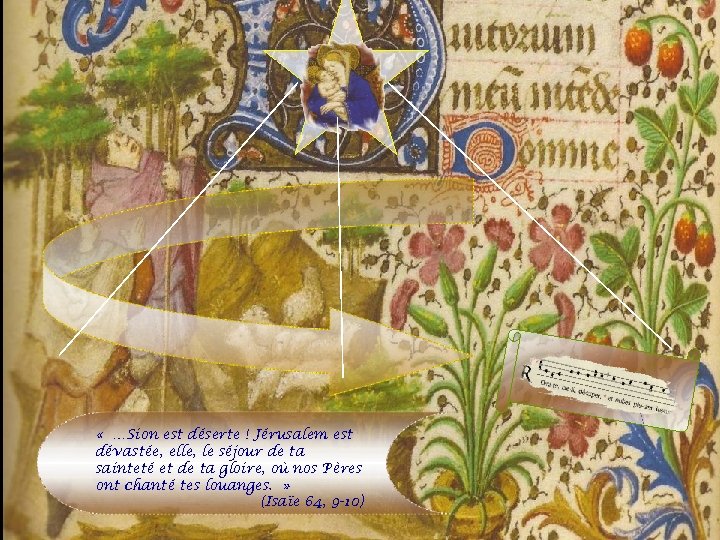 utorum
meū intēde
Domine
R
Rorate, cæ li, désuper, * et nubes plu ant
« …Sion est déserte ! Jérusalem est
dévastée, elle, le séjour de ta
sainteté et de ta gloire, où nos Pères
ont chanté tes louanges. »
(Isaïe 64, 9-10)